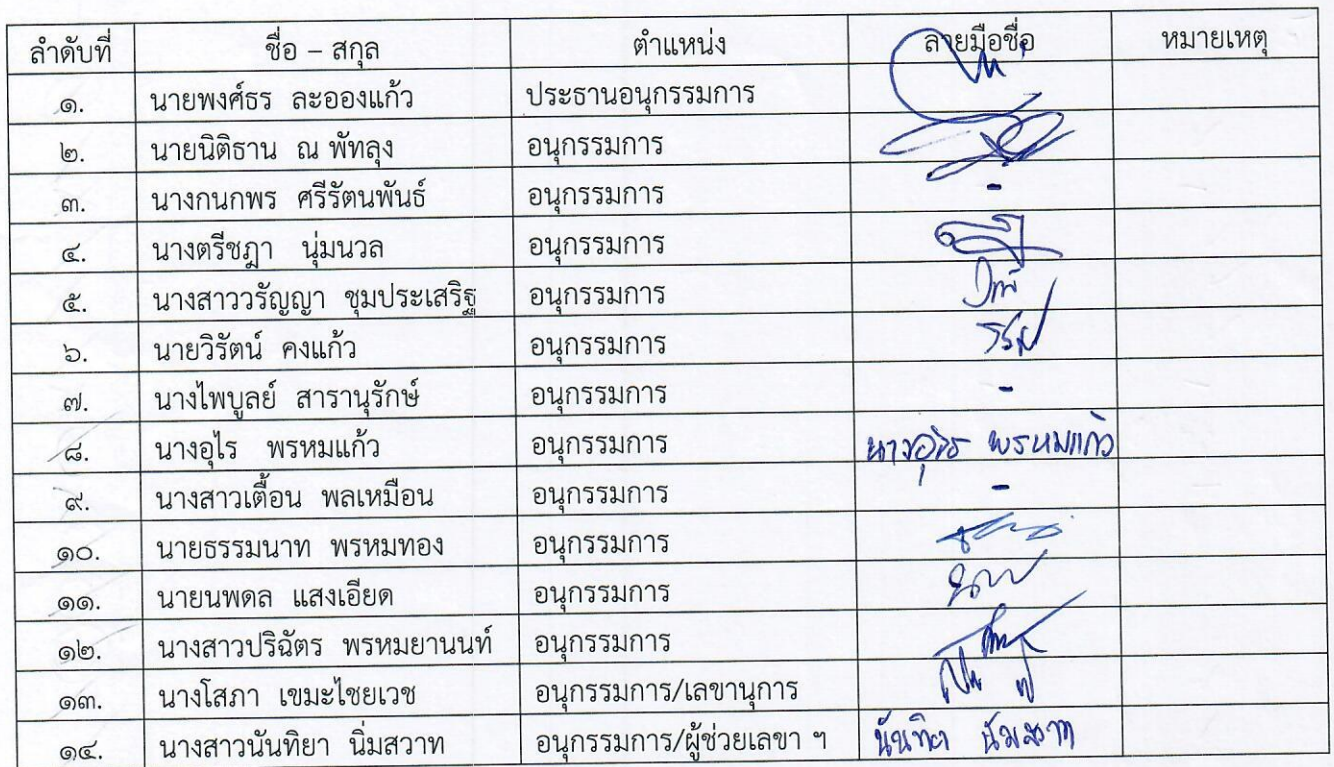 ลำดับที่ ชื่อ – สกุล ตำแหน่ง ลายมือชื่อ หมายเหตุ
๑. นายพงศ์ธร ละอองแก้ว ประธานอนุกรรมการ
๒. นายนิติธาน ณ พัทลุง อนุกรรมการ
๓. นางกนกพร ศรีรัตนพันธ์ อนุกรรมการ -
๔. นางตรีชฎา นุ่มนวล อนุกรรมการ
๕. นางสาววรัญญา ชุมประเสริฐ อนุกรรมการ
๖. นายวิรัตน์ คงแก้ว อนุกรรมการ
๗. นางไพบูลย์ สารานุรักษ์ อนุกรรมการ -
๘. นางอุไร พรหมแก้ว อนุกรรมการ นางอุไร พรหมแก้ว
๙. นางสาวเตื้อน พลเหมือน อนุกรรมการ -
๑๐. นายธรรมนาท พรหมทอง อนุกรรมการ
๑๑. นายนพดล แสงเอียด อนุกรรมการ
๑๒. นางสาวปริฉัตร พรหมยานนท์ อนุกรรมการ
๑๓. นางโสภา เขมะไชยเวช อนุกรรมการ/เลขานุการ
๑๔. นางสาวนันทิยา นิ่มสวาท อนุกรรมการ/ผู้ช่วยเลขา ฯ